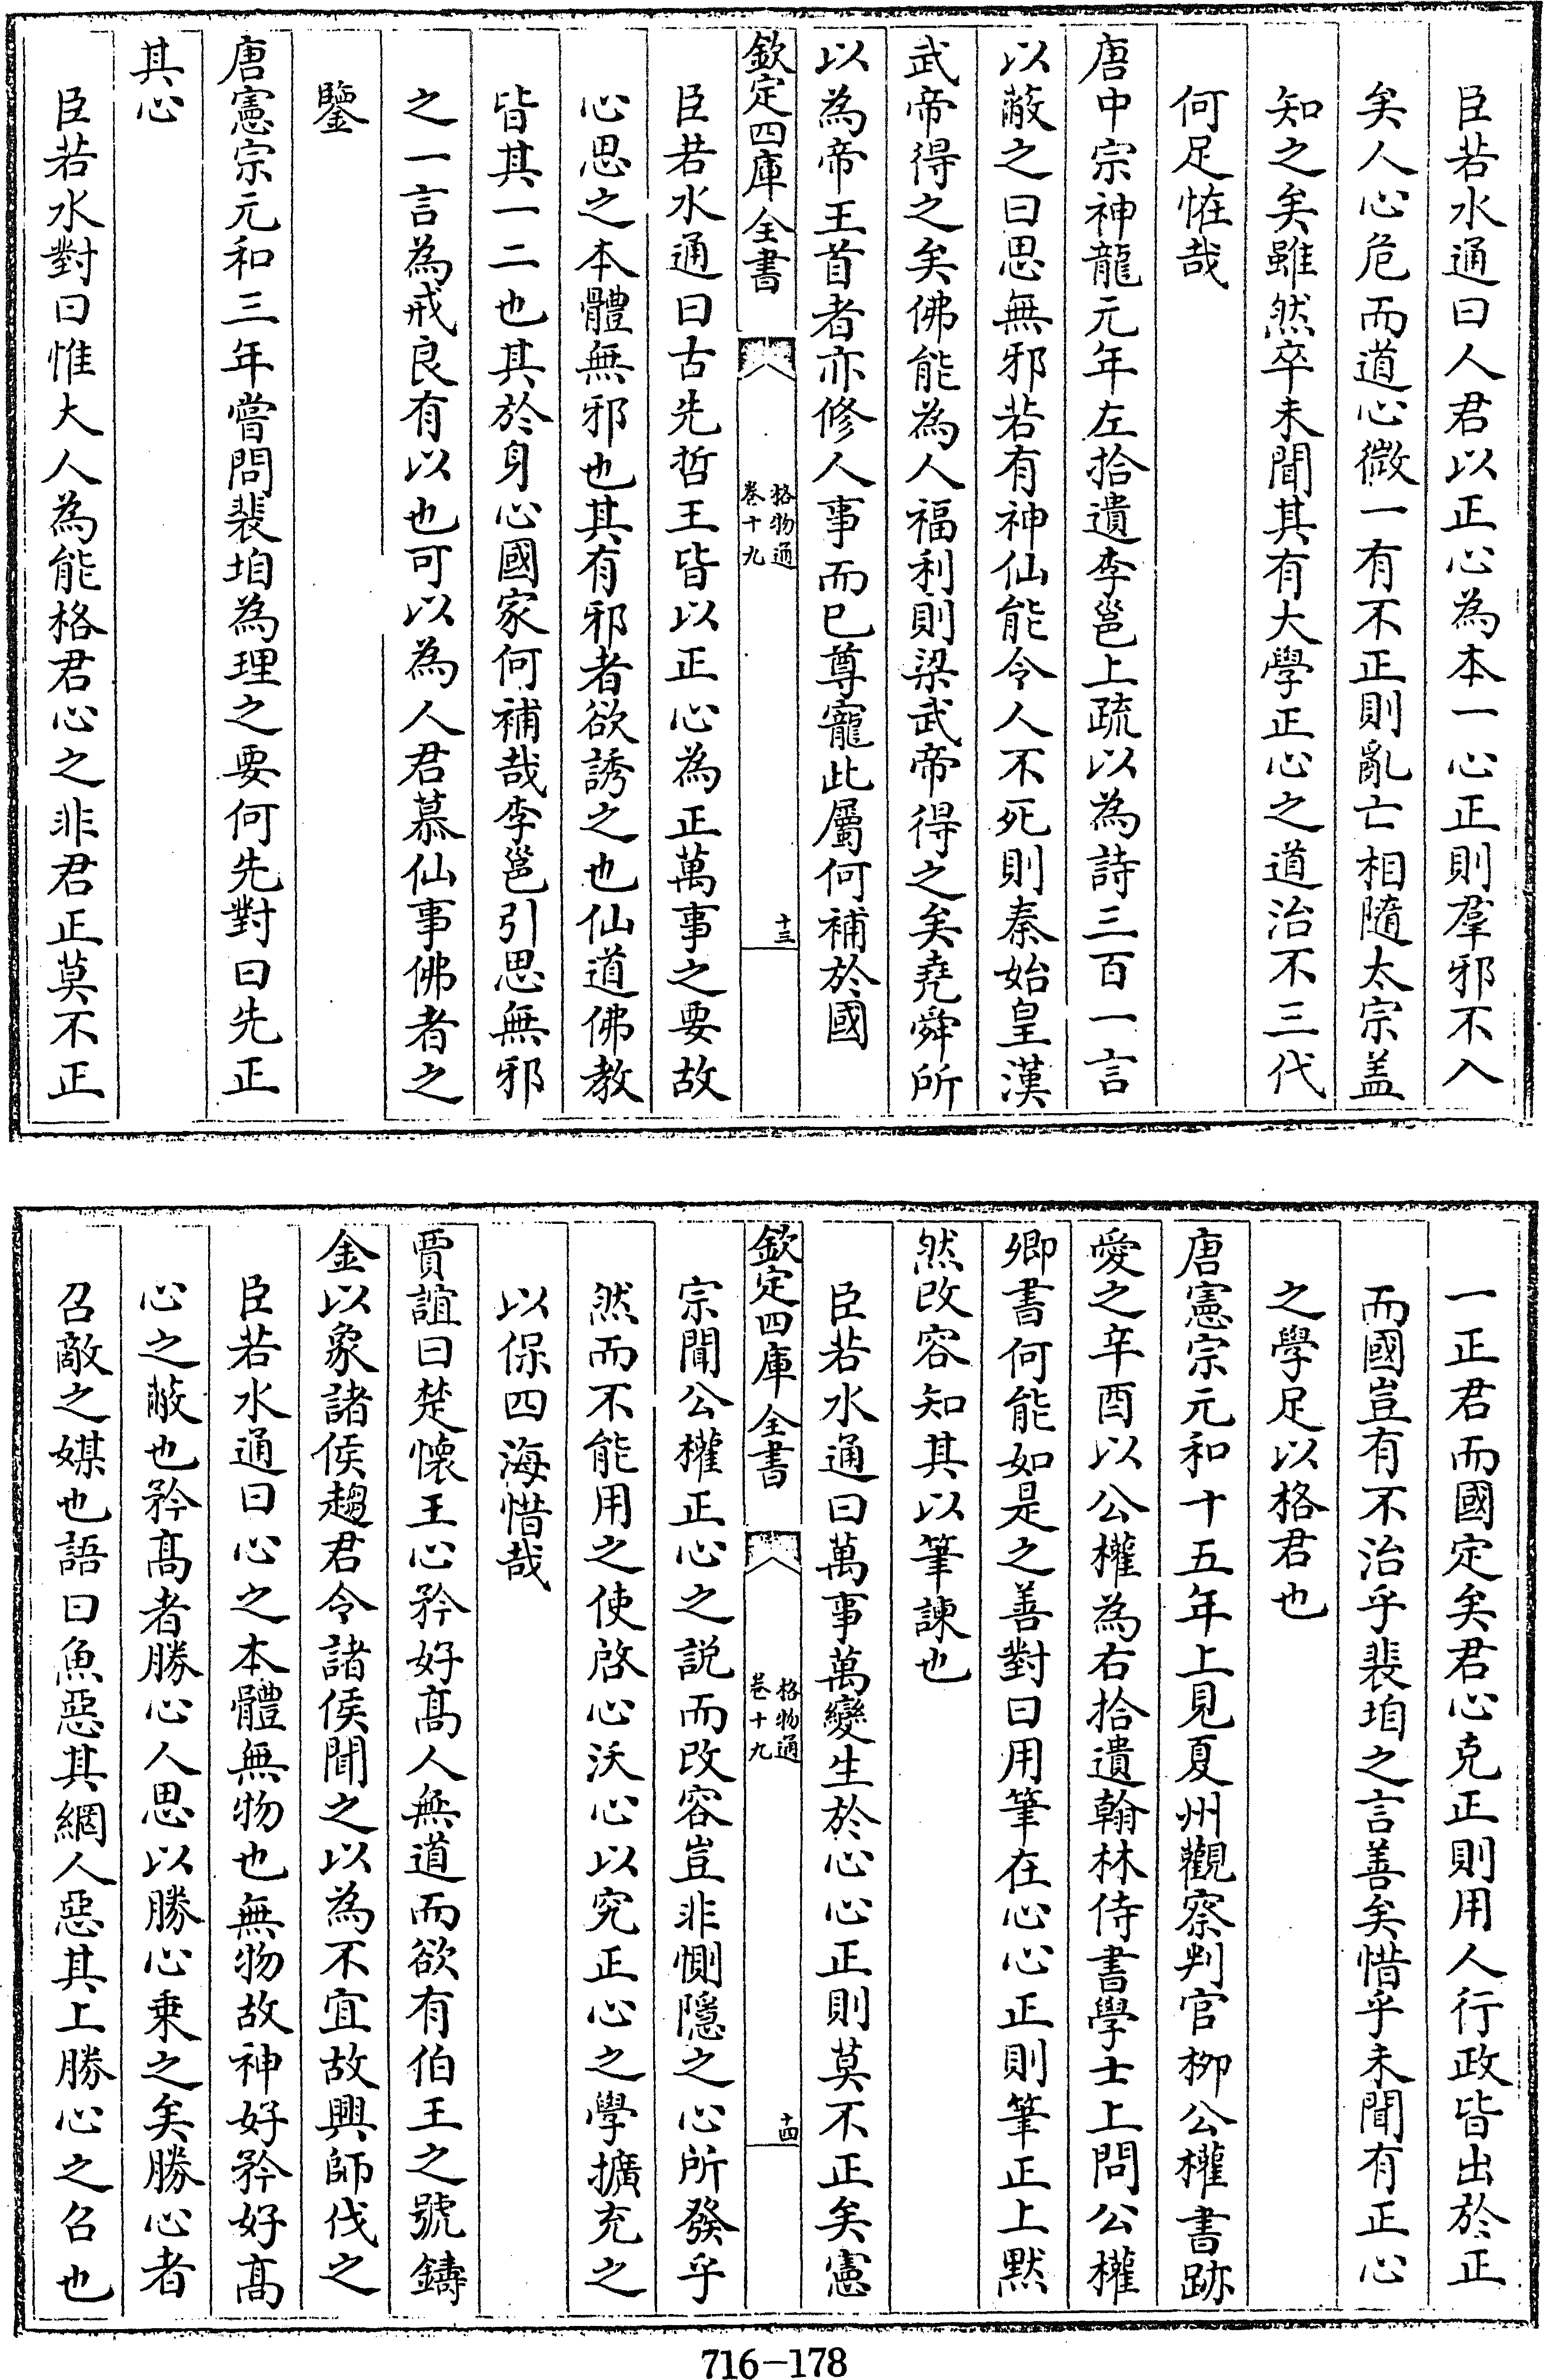 臣若水通曰人君以正心為本一心正則羣邪不入
矣人心危而道心微一有不正則亂亡相隨太宗盖
知之矣雖然卒未聞其有大學正心之道治不三代
何足恠哉
唐中宗神龍元年左拾遺李邕上疏以為詩三百一言
以蔽之曰思無邪若有神仙能令人不死則秦始皇漢
武帝得之矣佛能為人福利則梁武帝得之矣堯舜所
以為帝王首者亦修人事而已尊寵此屬何補於國
欽定四庫全書
格物通
卷十九
十三
臣若水通曰古先哲王皆以正心為正萬事之要故
心思之本體無邪也其有邪者欲誘之也仙道佛教
皆其一二也其於身心國家何補哉李邕引思無邪
之一言為戒良有以也可以為人君慕仙事佛者之
鑒
唐憲宗元和三年嘗問裴垍為理之要何先對曰先正
其心
臣若水對曰惟大人為能格君心之非君正莫不正
一正君而國定矣君心克正則用人行政皆出於正
而國豈有不治乎裴垍之言善矣惜乎未聞有正心
之學足以格君也
唐憲宗元和十五年上見夏州觀察判官柳公權書跡
愛之辛酉以公權為右拾遺翰林侍書學士上問公權
卿書何能如是之善對曰用筆在心心正則筆正上默
然改容知其以筆諫也
臣若水通曰萬事萬變生於心心正則莫不正矣憲
欽定四庫全書
格物通
卷十九
十四
宗聞公權正心之説而改容豈非惻隱之心所發乎
然而不能用之使啓心沃心以究正心之學擴充之
以保四海惜哉
賈誼曰楚懷王心矜好髙人無道而欲有伯王之號鑄
金以象諸侯趨君令諸侯聞之以為不宜故興師伐之
臣若水通曰心之本體無物也無物故神好矜好髙
心之蔽也矜髙者勝心人思以勝心乗之矣勝心者
召敵之媒也語曰魚惡其網人惡其上勝心之召也
716-178